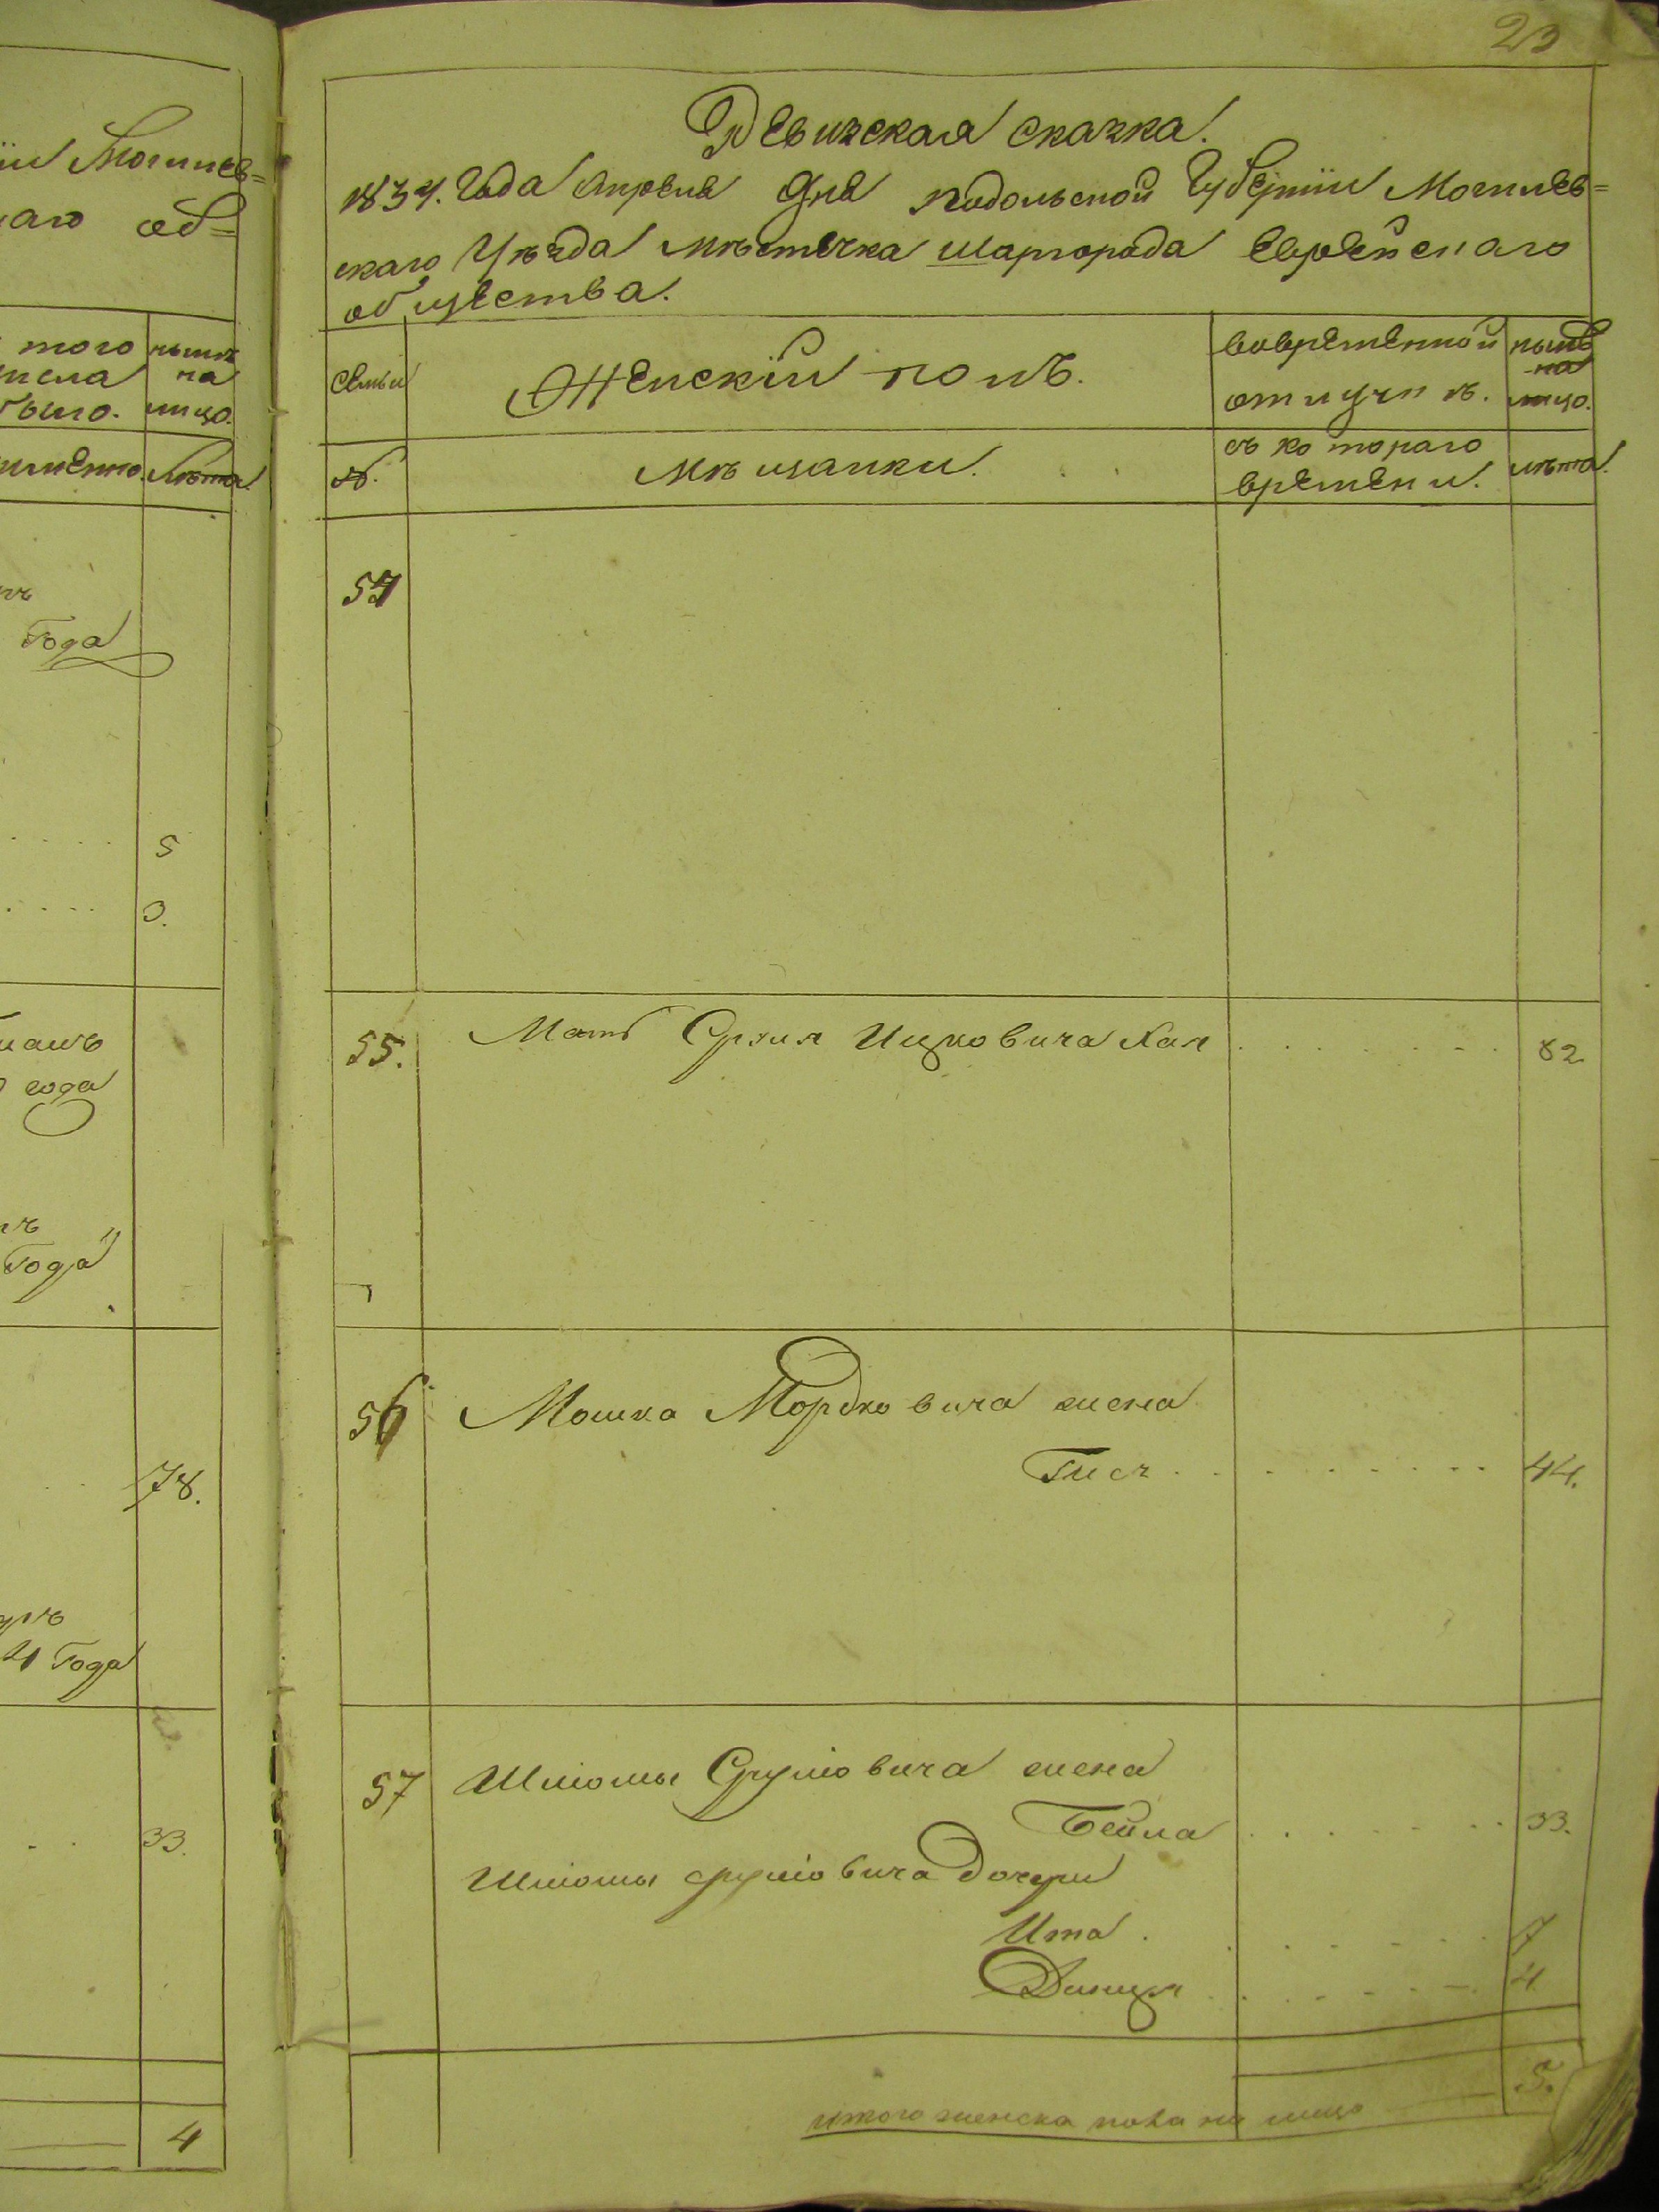 23
Ревижская сказка.
1834. Года Апреля Дня Подольской Губернии Могилев=
скаго Уѣзда Мѣстечка Шаргорода Еврейскаго
общества.
Семьи
Женскій полъ.
вовременной
отлучкѣ.
нынѣ
на
лицо.
№.
Мѣщанки.
съ котораго
времени.
лѣта.
54
55. Мать Сруля Ицковича Хая 82
56 Мошка Мордковича жена
44.
57 Шліомы Сруліовича жена
Бейла 33.
Шліомы Сруліовича дочери
Ита 7
4
итого женска пола на лицо 5.
їи Могилев=
каго об=
того
числа
было.
нынѣ
на
лицо.
именно. Лѣта.
Года
5
3.
года
Года
78.
4 Года
33.
4